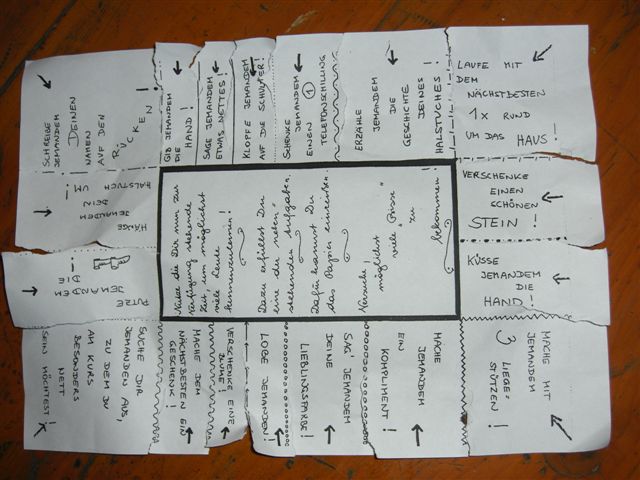 SCHREIBE
JEMANDEM
DEINEN
NAMEN
AUF DEN
RÜCKEN!
GIB JEMANDEM
DIE HAND!
SAGE JEMANDEM
ETWAS NETTES!
KLOPFE JEMANDEM
AUF DIE SCHULTER!
SCHENKE
JEMANDEM
EINEN 1
TELEFONSCHILLING
ERZÄHLE
JEMANDEM
DIE
GESCHICHTE
DEINES
HALSTUCHES!
LAUFE MIT
DEM
NÄCHSTBESTEN
1x RUND
UM DAS HAUS!
VERSCHENKE
EINEN
SCHÖNEN
STEIN!
KÜSSE
JEMANDEM
DIE
HAND!
MACHE MIT
JEMANDEM
3 LIEGE-
STÜTZEN!
MACHE
JEMANDEM
EIN
KOMPLIMENT!
SAG' JEMANDEM
DEINE
LIEBLINGSFARBE!
LOBE JEMANDEN!
VERSCHENKE EINE
BLUME!
MACHE DEM
NÄCHSTBESTEN EIN
GESCHENK!
SUCHE DIR
JEMANDEN AUS,
ZU DEM DU
AM KURS
BESONDERS
NETT
SEIN MÖCHTEST!
PUTZE
JEMANDEM
DIE
!
HÄNGE
JEMANDEM
DEIN
HALSTUCH UM!
Nütze die Dir nun zur
Verfügung stehende
Zeit, um möglichst
viele Leute
kennenzulernen!
Dazu erfüllst Du
eine der neben-
stehenden Aufgaben.
Dafür kannst Du
das Papier einreißen
Versuche,
möglichst
viele "Risse"
zu
bekommen!